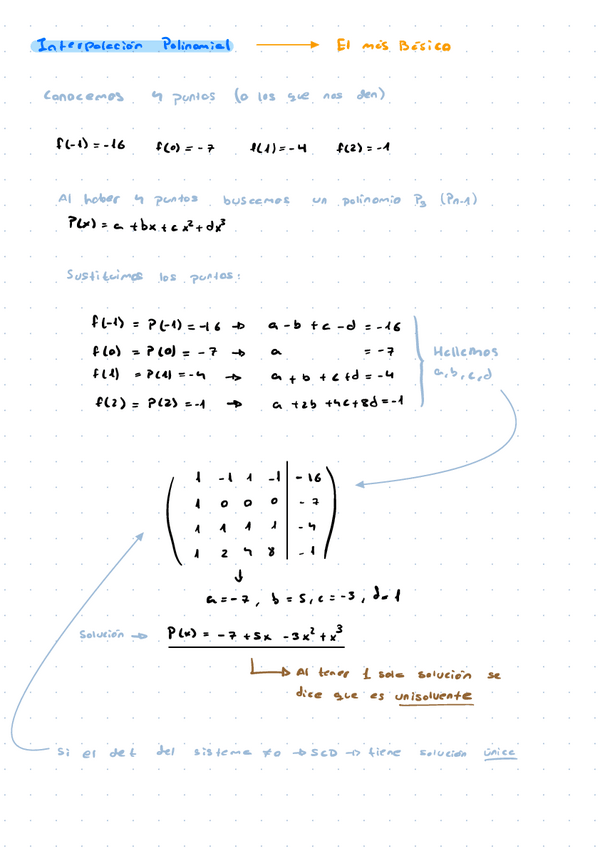 Interpolación Polinomial → El más Básico
Conocemos 4 puntos (o los que nos den)
f(-1) = -16 f(0) = -7 f(1) = -4 f(2) = -1
Al haber 4 puntos buscamos un polinomio P₃ (Pn-1)
P(x) = a + bx + cx² + dx³
Sustituimos los puntos:
f(-1) = P(-1) = -16 → a - b + c - d = -16
f(0) = P(0) = -7 → a = -7
f(1) = P(1) = -4 → a + b + c + d = -4
f(2) = P(2) = -1 → a + 2b + 4c + 8d = -1
Hallemos
a, b, c, d
1 -1 1 -1 | -16
1 0 0 0 | -7
1 1 1 1 | -4
1 2 4 8 | -1
↓
a = -7, b = 5, c = -3, d = 1
Solución → P(x) = -7 + 5x - 3x² + x³
→ Al tener 1 sola solución se
dice que es unisolvente
Si el det del sistema ≠ 0 → SCD → tiene solución única